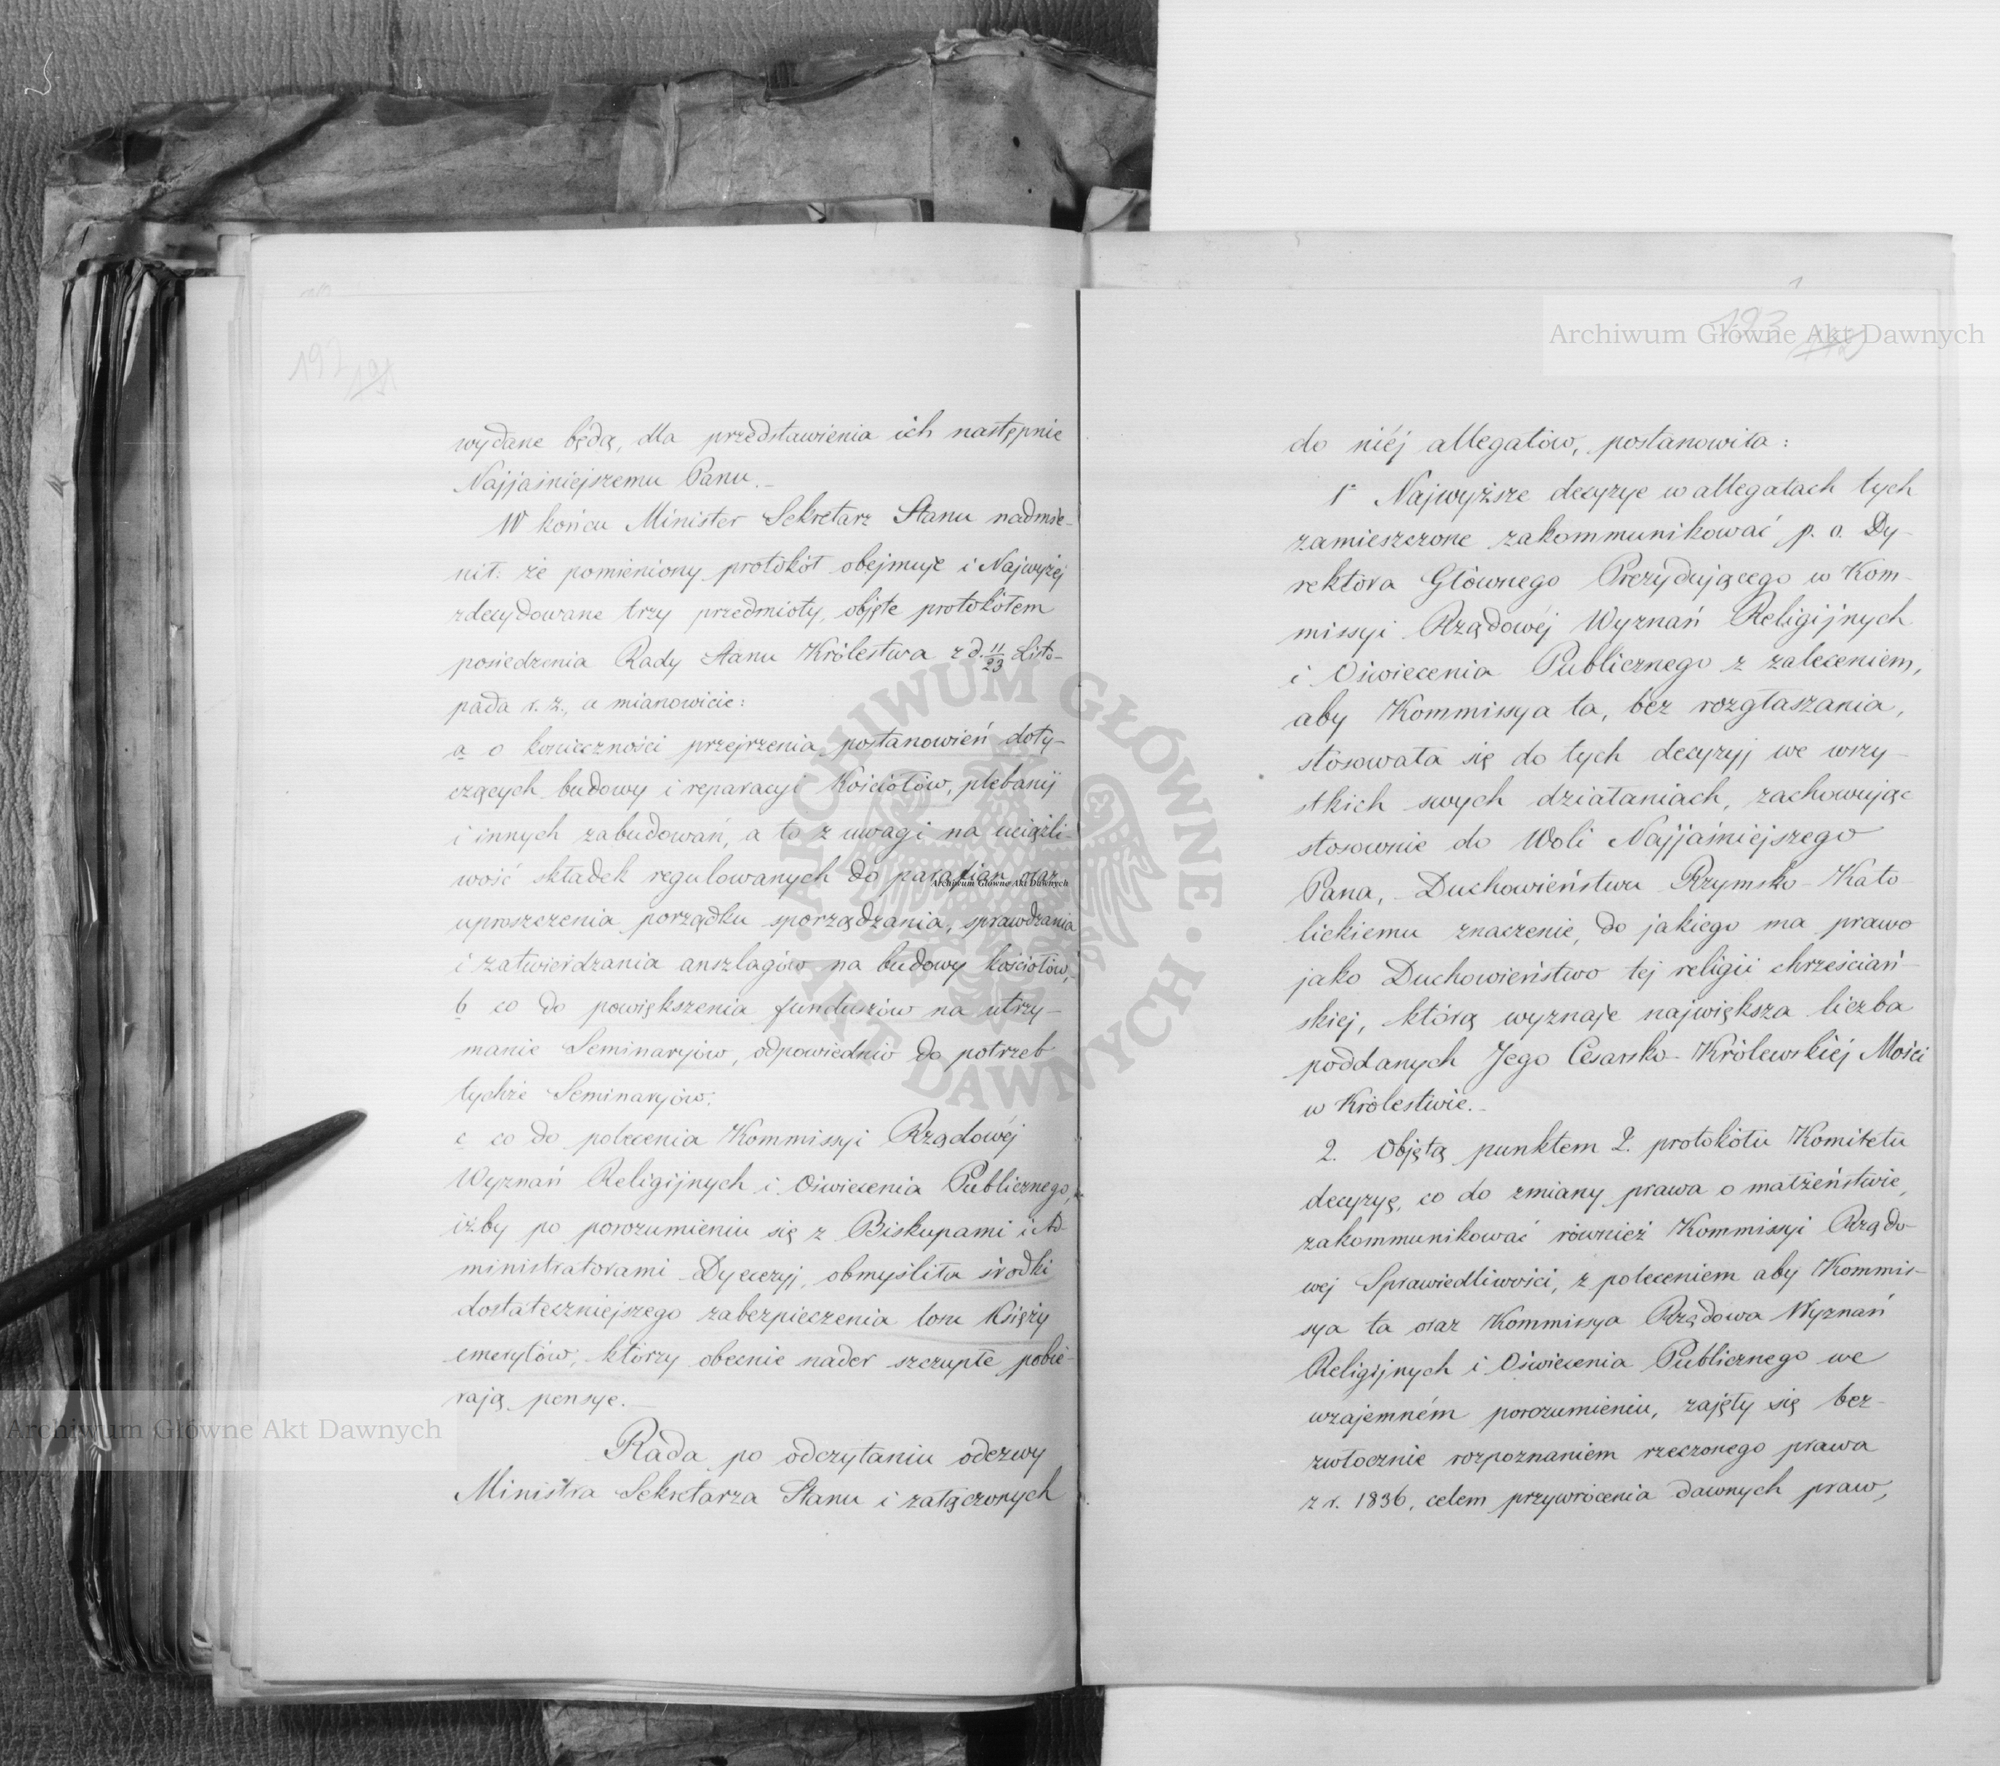 192 191
wydane będą, dla przedstawienia ich następnie
Najjaśniejszemu Panu.–
W końcu Minister Sekretarz Stanu nadmie-
nił: że pomieniony protokół obejmuje i Najwyżej
zdecydowane trzy przedmioty, objęte protokółem
posiedzenia Rady Stanu Królestwa z d. 11/23 Listo-
pada r. z., a mianowicie:
a o konieczności przejrzenia postanowień doty-
czących budowy i reparacyi Kościołów, plebanij
i innych zabudowań, a to z uwagi na uciążli-
wość składek regulowanych do parafian oraz
uproszczenia porządku sporządzania, sprawdzania
i zatwierdzania anszlagów na budowy kościołów,
b co do powiększenia funduszów na utrzy-
manie Seminaryjów, odpowiednio do potrzeb
tychże Seminaryjów;
c co do polecenia Kommissyi Rządowéj
Wyznań Religijnych i Oświecenia Publicznego,
iżby po porozumieniu się z Biskupami i Ad-
ministratorami Dyecezyj, obmyśliła środki
dostateczniejszego zabezpieczenia losu Księży
emerytów, którzy obecnie nader szczupłe pobie-
rają pensye.–
Rada po odczytaniu odezwy
Ministra Sekretarza Stanu i załączonych
193
do niéj allegatów, postanowiła:
1º Najwyższe decyzye w allegatach tych
zamieszczone zakommunikować p. o. Dy-
rektora Głównego Prezydującego w Kom-
missyi Rządowéj Wyznań Religijnych
i Oświecenia Publicznego z zaleceniem,
aby Kommissya ta, bez rozgłaszania,
stosowała się do tych decyzyj we wszy-
stkich swych działaniach, zachowując
stosownie do Woli Najjaśniejszego
Pana, Duchowieństwu Rzymsko-Kato-
lickiemu znaczenie, do jakiego ma prawo
jako Duchowieństwo tej religii chrześciań-
skiej, którą wyznaje największa liczba
poddanych Jego Cesarsko-Królewskiéj Mości
w Królestwie.–
2. Objętą punktem 2. protokółu Komitetu
decyzyę, co do zmiany prawa o małżeństwie,
zakommunikować również Kommissyi Rządo-
wej Sprawiedliwości, z poleceniem aby Kommis-
sya ta oraz Kommissya Rządowa Wyznań
Religijnych i Oświecenia Publicznego we
wzajemném porozumieniu, zajęły się bez-
zwłocznie rozpoznaniem rzeczonego prawa
z r. 1836, celem przywrócenia dawnych praw,
Archiwum Główne Akt Dawnych
Archiwum Główne Akt Dawnych
Archiwum Główne Akt Dawnych
ARCHIWUM GŁÓWNE AKT DAWNYCH